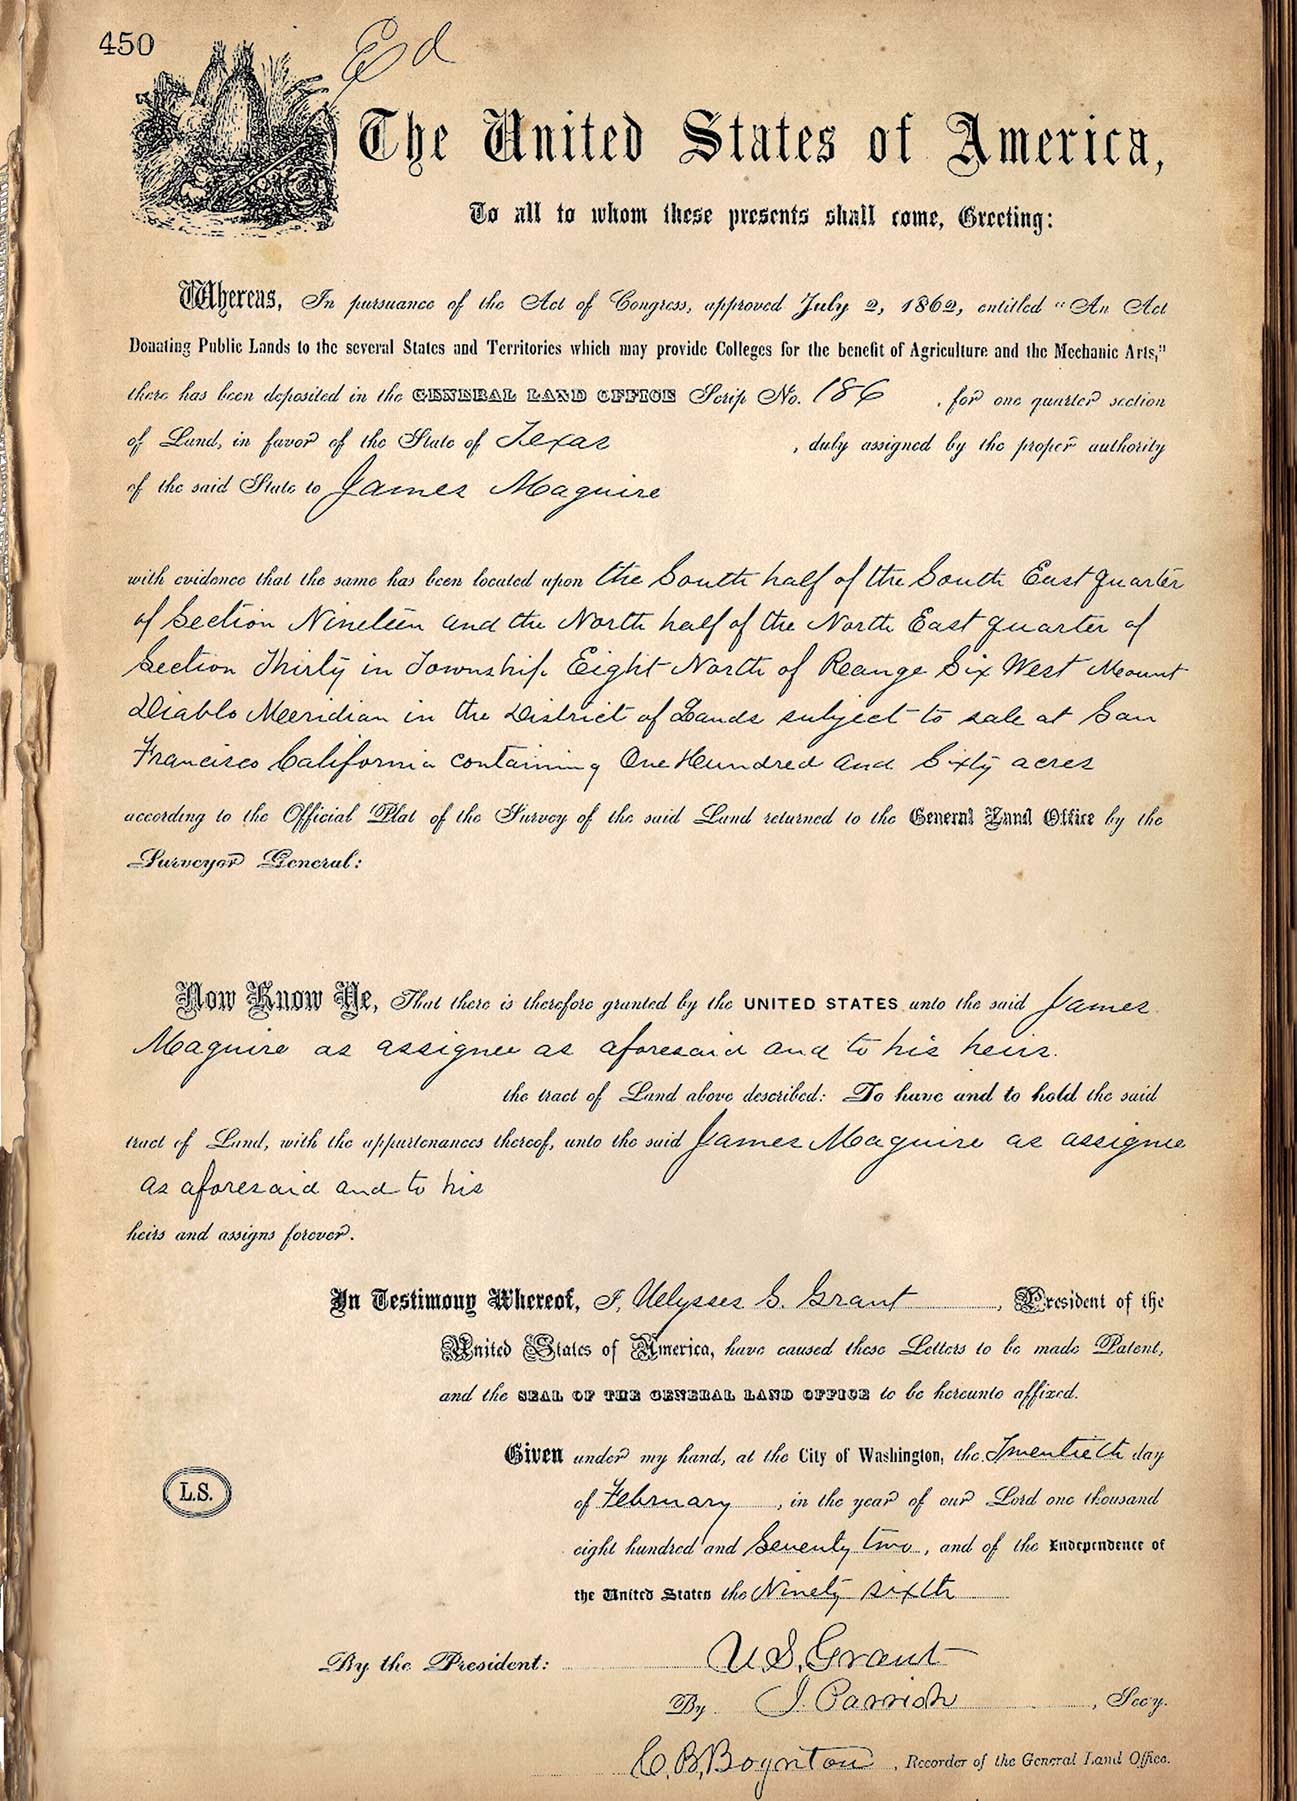 450
Ed
The United States of America,
To all to whom these presents shall come, Greeting:
Whereas, In pursuance of the Act of Congress, approved July 2, 1862, entitled "An Act
Donating Public Lands to the several States and Territories which may provide Colleges for the benefit of Agriculture and the Mechanic Arts,"
there has been deposited in the GENERAL LAND OFFICE Scrip No. 186 , for one quarter section
of Land, in favor of the State of Texas , duly assigned by the proper authority
of the said State to James Maguire
with evidence that the same has been located upon the South half of the South East quarter
of Section Nineteen and the North half of the North East quarter of
Section Thirty in Township Eight North of Range Six West Mount
Diablo Meridian in the District of Lands subject to sale at San
Francisco California containing One Hundred and Sixty acres
according to the Official Plat of the Survey of the said Land returned to the General Land Office by the
Surveyor General:
Now Know Ye, That there is therefore granted by the UNITED STATES unto the said James
Maguire as assignee as aforesaid and to his heirs.
the tract of Land above described: To have and to hold the said
tract of Land, with the appurtenances thereof, unto the said James Maguire as assignee
as aforesaid and to his
heirs and assigns forever.
In Testimony Whereof, I, Ulysses S. Grant , President of the
United States of America, have caused these Letters to be made Patent,
and the SEAL OF THE GENERAL LAND OFFICE to be hereunto affixed.
Given under my hand, at the City of Washington, the Twentieth day
of February , in the year of our Lord one thousand
L.S.
eight hundred and Seventy two , and of the Independence of
the United States the Ninety sixth
By the President: U.S. Grant
By J. Parrish , Secy.
C. B. Boynton , Recorder of the General Land Office.